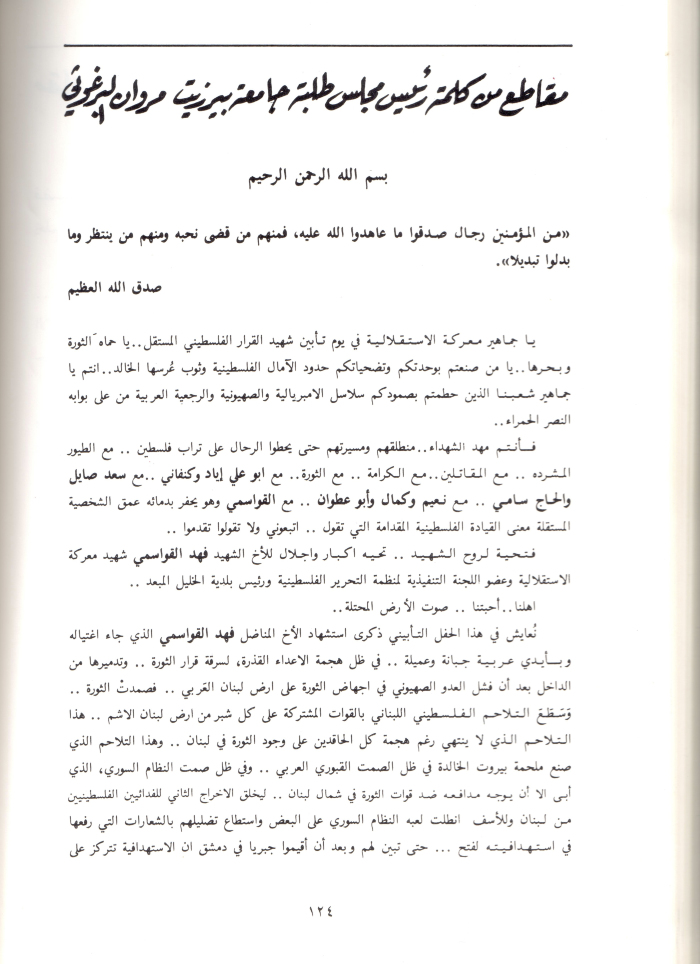 مقاطع من كلمة رئيس مجلس طلبة جامعة بيرزيت مروان البرغوثي
بسم الله الرحمن الرحيم
«من المؤمنين رجال صدقوا ما عاهدوا الله عليه، فمنهم من قضى نحبه ومنهم من ينتظر وما
بدلوا تبديلا».
صدق الله العظيم
يا جماهير معركة الاستقلالية في يوم تأبين شهيد القرار الفلسطيني المستقل..يا حماه َ الثورة
وبحرها..يا من صنعتم بوحدتكم وتضحياتكم حدود الآمال الفلسطينية وثوب عُرسها الخالد..انتم يا
جماهير شعبنا الذين حطمتم بصمودكم سلاسل الامبريالية والصهيونية والرجعية العربية من على بوابه
النصر الحمراء..
فأنتم مهد الشهداء..منطلقهم ومسيرتهم حتى يحطوا الرحال على تراب فلسطين .. مع الطيور
المشرده .. مع المقاتلين..مع الكرامة .. مع الثورة.. مع ابو علي إياد وكنفاني ..مع سعد صايل
والحاج سامي .. مع نعيم وكمال وأبو عطوان .. مع القواسمي وهو يحفر بدمائه عمق الشخصية
المستقلة معنى القيادة الفلسطينية المقدامة التي تقول .. اتبعوني ولا تقولوا تقدموا ..
فتحية لروح الشهيد .. تحيه اكبار واجلال للأخ الشهيد فهد القواسمي شهيد معركة
الاستقلالية وعضو اللجنة التنفيذية لمنظمة التحرير الفلسطينية ورئيس بلدية الخليل المبعد ..
اهلنا..أحبتنا .. صوت الأرض المحتلة..
نُعايش في هذا الحفل التأبيني ذكرى استشهاد الأخ المناضل فهد القواسمي الذي جاء اغتياله
وبأيدي عربية جبانة وعميلة .. في ظل هجمة الاعداء القذرة، لسرقة قرار الثورة .. وتدميرها من
الداخل بعد أن فشل العدو الصهيوني في اجهاض الثورة على ارض لبنان العَربي .. فصمدتْ الثورة ..
وَسَطَعَ التلاحم الفلسطيني اللبناني بالقوات المشتركة على كل شبر من ارض لبنان الاشم .. هذا
التلاحم الذي لا ينتهي رغم هجمة كل الحاقدين على وجود الثورة في لبنان .. وهذا التلاحم الذي
صنع ملحمة بيروت الخالدة في ظل الصمت القبوري العربي .. وفي ظل صمت النظام السوري، الذي
أبى الا أن يوجه مدافعه ضد قوات الثورة في شمال لبنان .. ليخلق الاخراج الثاني للفدائيين الفلسطينيين
من لبنان وللأسف انطلت لعبه النظام السوري على البعض واستطاع تضليلهم بالشعارات التي رفعها
في استهدافيته لفتح ... حتى تبين لهم وبعد أن أقيموا جبريا في دمشق ان الاستهدافية تتركز على
١٢٤